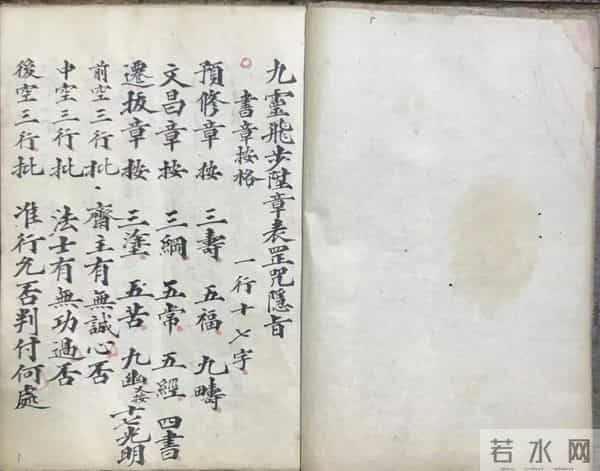 九靈飛步陞章表罡咒隱旨
書章按格 一行十七字
預修章按 三壽 五福 九疇
文昌章按 三綱 五常 五經 四書
遷拔章按 三塗 五苦 九幽 十七光明
前空三行批 齋主有無誠心否
中空三行批 法士有無功過否
後空三行批 准行允否判付何處
若水网